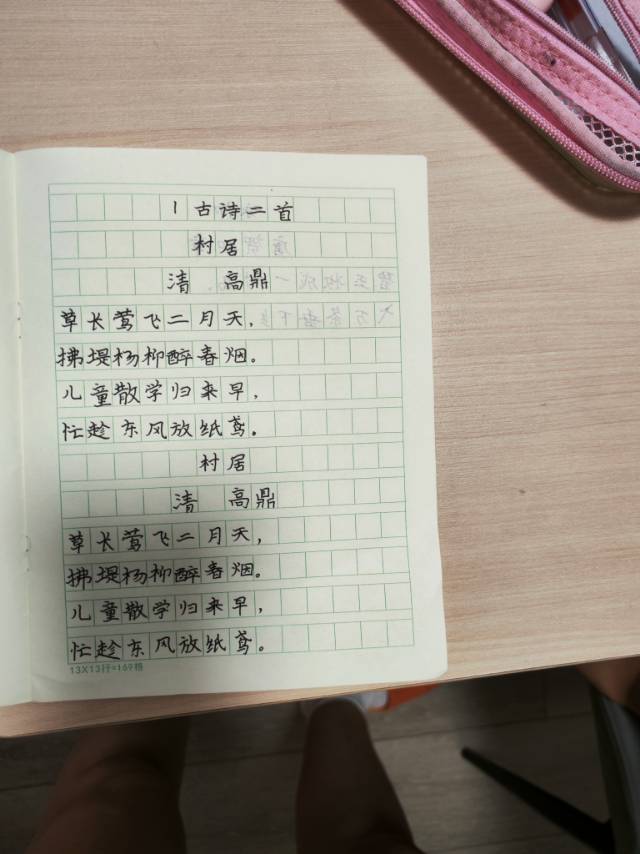 1古诗二首
村居
清 高鼎
草长莺飞二月天，
拂堤杨柳醉春烟。
儿童散学归来早，
忙趁东风放纸鸢。
村居
清 高鼎
草长莺飞二月天，
拂堤杨柳醉春烟。
儿童散学归来早，
忙趁东风放纸鸢。
13X13行=169格